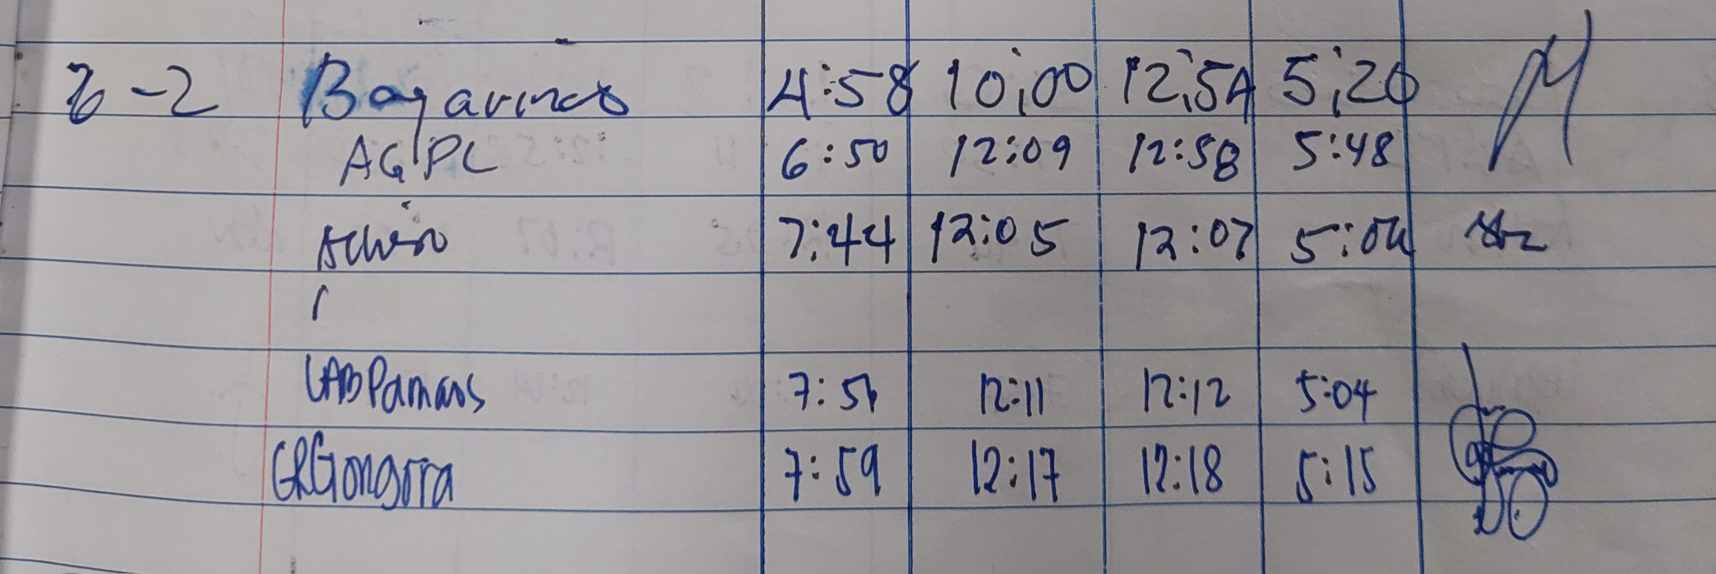 -2 4:58 10:00 12:54 5:20
AGPL 6:50 12:09 12:58 5:48
7:44 12:05 12:07 5:04
7:51 12:11 12:12 5:04
GRGongora 7:59 12:17 12:18 5:15